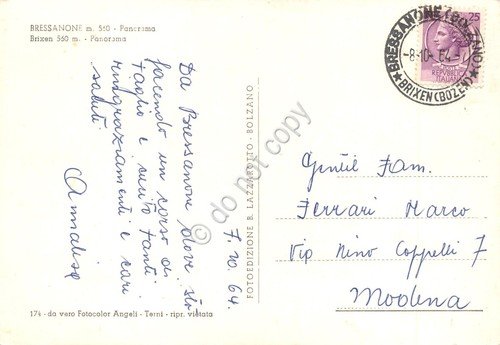 BRESSANONE m. 560 - Panorama
Brixen 560 m. - Panorama
Da Bressanone dove sto
facendo un corso di
taglio e cucito tanti
ringraziamenti e cari
saluti
Annalisa
7. 10. 64.
174 - da vero Fotocolor Angeli - Terni - ripr. vietata
FOTOEDIZIONE B. LAZZAROTTO - BOLZANO
© do not copy
BRESSANONE (BOLZANO)
-8-10. 64-
BRIXEN (BOZEN)
25
Gentil Fam.
Ferrari Marco
Via Nino Coppelli 7
Modena